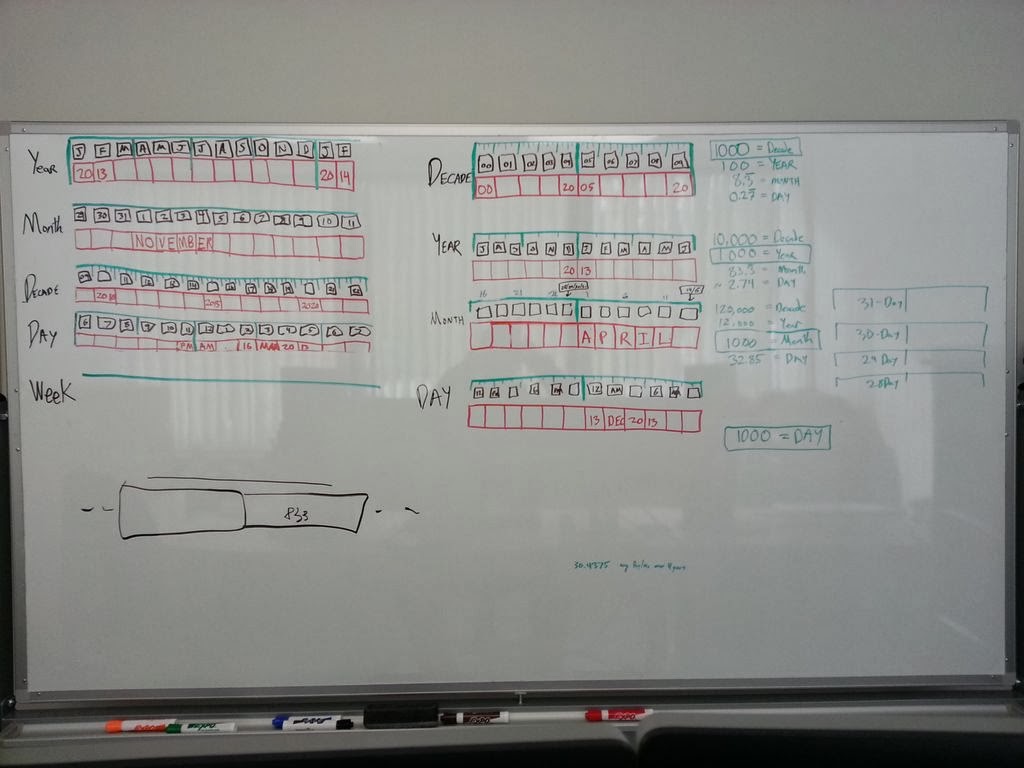 YEAR
J F M A M J J A S O N D J F
20 13 20 14
MONTH
29 30 31 1 2 3 4 5 6 7 8 9 10 11
NOVEMBER
DECADE
2010 2015 2020
DAY
6 7 8 9 10 11 12 1 2 3 4 5 6 7
PM AM 16 MAR 20 13
WEEK
833
DECADE
00 01 02 03 04 05 06 07 08 09
00 20 05 20
YEAR
J A S O N D J F M A M J
20 13
MONTH
16 21 6 11
APRIL
DAY
12 AM 6
13 DEC 20 13
1000 = Decade
100 = YEAR
8.3 = MONTH
0.27 = DAY
10,000 = Decade
1000 = Year
83.3 = Month
~ 2.74 = DAY
120,000 = Decade
12,000 = Year
1000 = Month
32.85 = DAY
1000 = DAY
31-Day
30-Day
29 Day
28 Day
30.4375
EXPO
EXPO
EXPO
EXPO